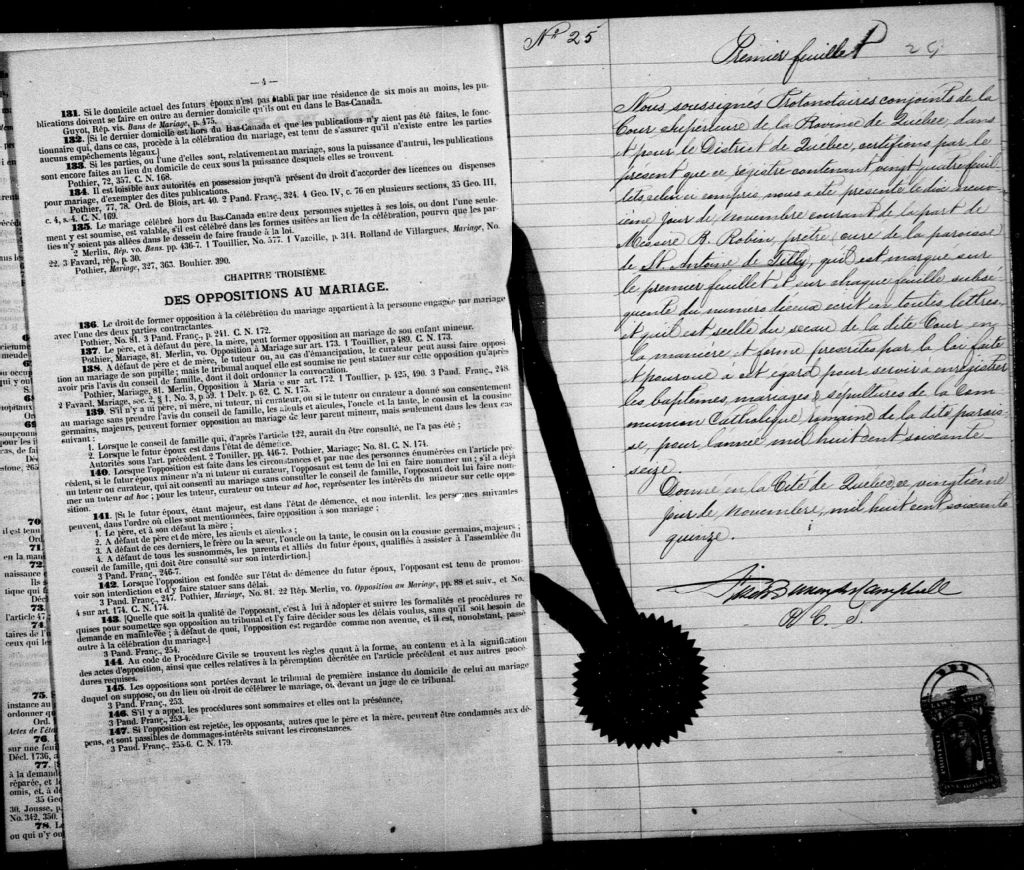 — 4 —
131. Si le domicile actuel des futurs époux n'est pas établi par une résidence de six mois au moins, les pu-
blications doivent se faire en outre au dernier domicile qu'ils ont eu dans le Bas-Canada.
Guyot, Rép. vis. Bans de Mariage, p. 475.
132. [Si le dernier domicile est hors du Bas-Canada et que les publications n'y aient pas été faites, le fonc-
tionnaire qui, dans ce cas, procède à la célébration du mariage, est tenu de s'assurer qu'il n'existe entre les parties
aucuns empêchements légaux.]
133. Si les parties, ou l'une d'elles sont, relativement au mariage, sous la puissance d'autrui, les publications
sont encore faites au lieu du domicile de ceux sous la puissance desquels elles se trouvent.
Pothier, 72, 357. C. N. 168.
134. Il est loisible aux autorités en possession jusqu'à présent du droit d'accorder des licences ou dispenses
pour mariage, d'exempter des dites publications.
Pothier, 77, 78. Ord. de Blois, art. 40. 2 Pand. Franç., 324. 4 Geo. IV, c. 76 en plusieurs sections, 35 Geo. III,
c. 4, s. 4. C. N. 169.
135. Le mariage célébré hors du Bas-Canada entre deux personnes sujettes à ses lois, ou dont l'une seule-
ment y est soumise, est valable, s'il est célébré dans les formes usitées au lieu de la célébration, pourvu que les par-
ties n'y soient pas allées dans le dessein de faire fraude à la loi.
2 Merlin, Rép. vo. Bans. pp. 436-7. 1 Touillier, No. 577. 1 Vazeille, p. 314. Rolland de Villargues, Mariage, No.
22. 3 Favard, rép., p. 30.
Pothier, Mariage, 327, 363. Bouhier. 390.
CHAPITRE TROISIÈME.
DES OPPOSITIONS AU MARIAGE.
136. Le droit de former opposition à la célébration du mariage appartient à la personne engagée par mariage
avec l'une des deux parties contractantes.
Pothier, No. 81. 3 Pand. Franç., p. 241. C. N. 172.
137. Le père, et à défaut du père, la mère, peut former opposition au mariage de son enfant mineur.
Pothier, Mariage, 81. Merlin, vo. Opposition à Mariage sur art. 173. 1 Touillier, p 489. C. N. 173.
138. A défaut de père et de mère, le tuteur ou, au cas d'émancipation, le curateur peut aussi faire opposi-
tion au mariage de son pupille; mais le tribunal auquel elle est soumise ne peut statuer sur cette opposition qu'après
avoir pris l'avis du conseil de famille, dont il doit ordonner la convocation.
Pothier, Mariage, 81. Merlin, Opposition à Maria e sur art. 172. 1 Toullier, p. 425, 490. 3 Pand. Franç., 248.
2 Favard, Mariage, sec. 2, § 1. No. 3, p. 59. 1 Delv. p. 62. C. N. 175.
139. S'il n'y a ni père, ni mère, ni tuteur, ni curateur, ou si le tuteur ou curateur a donné son consentement
au mariage sans prendre l'avis du conseil de famille, les aïeuls et aïeules, l'oncle et la tante, le cousin et la cousine
germains, majeurs, peuvent former opposition au mariage de leur parent mineur, mais seulement dans les deux cas
suivant :
1. Lorsque le conseil de famille qui, d'après l'article 122, aurait du être consulté, ne l'a pas été ;
2. Lorsque le futur époux est dans l'état de démence.
Autorités sous l'art. précédent. 2 Touiller, pp. 446-7. Pothier, Mariage; No. 81. C. N. 174.
140. Lorsque l'opposition est faite dans les circonstances et par une des personnes énumérées en l'article pré-
cédent, si le futur époux mineur n'a ni tuteur ni curateur, l'opposant est tenu de lui en faire nommer un ; s'il a déjà
un tuteur ou curateur, qui ait consenti au mariage sans consulter le conseil de famille, l'opposant doit lui faire nom-
mer un tuteur ad hoc ; pour les tuteur, curateur ou tuteur ad hoc, représenter les intérêts du mineur sur cette oppo-
sition.
141. [Si le futur époux, étant majeur, est dans l'état de démence, et non interdit, les personnes suivantes
peuvent, dans l'ordre où elles sont mentionnées, faire opposition à son mariage ;
1. Le père, et à son défaut la mère ;
2. A défaut de père et de mère, les aïeuls et aïeules ;
3. A défaut de ces derniers, le frère ou la sœur, l'oncle ou la tante, le cousin ou la cousine germains, majeurs ;
4. A défaut de tous les susnommés, les parents et alliés du futur époux, qualifiés à assister à l'assemblée du
conseil de famille, qui doit être consulté sur son interdiction.]
3 Pand. Franç., 246-7.
142. Lorsque l'opposition est fondée sur l'état de démence du futur époux, l'opposant est tenu de promou-
voir son interdiction et d'y faire statuer sans délai.
3 Pand. Franç., 247. Pothier, Mariage, No. 81. 22 Rép. Merlin, vo. Opposition au Mariage, pp. 88 et suiv., et No.
4 sur art. 174. C. N. 174.
143. [Quelle que soit la qualité de l'opposant, c'est à lui à adopter et suivre les formalités et procédures re-
quises pour soumettre son opposition au tribunal et l'y faire décider sous les délais voulus, sans qu'il soit besoin de
demande en mainlevée ; à défaut de quoi, l'opposition est regardée comme non avenue, et il est, nonobstant, passé
outre à la célébration du mariage.]
3 Pand. Franç., 254.
144. Au code de Procédure Civile se trouvent les règles quant à la forme, au contenu et à la signification
des actes d'opposition, ainsi que celles relatives à la péremption décrétée en l'article précédent et aux autres procé-
dures requises.
145. Les oppositions sont portées devant le tribunal de première instance du domicile de celui au mariage
duquel on suppose, ou du lieu où droit de célébrer le mariage, ou devant un juge de ce tribunal.
3 Pand. Franç., 253.
146. S'il y a appel, les procédures sont sommaires et elles ont la préséance,
3 Pand. Franç., 253-4.
147. Si l'opposition est rejetée, les opposants, autres que le père et la mère, peuvent être condamnés aux dé-
pens, et sont passibles de dommages-intérêts suivant les circonstances.
3 Pand. Franç., 255-6. C. N. 179.
70.
71.
72.
73.
l'article 47
75. S
instance au
ordonner q
Ord.
Actes de l'éta
76.
sur une feui
Décl. 1736, a
77. [S
à la demand
réparée, et l
omis, et, à d
35 Geo
30. Jousse, p
No. 342, 350
78. Le
ou qui n'y on
No 25
Premier feuillet
29
Nous soussignés Protonotaires conjoints de la
Cour Supérieure de la Province de Quebec dans
et pour le District de Quebec, certifions par le
présent que ce régistre contenant vingt quatre feuil
lets, celui ci compris, nous a été présenté le dix neuv
ième jour de novembre courant de la part de
Messire R. Robin, prêtre, curé de la paroisse
de St. Antoine de Tilly, qu'il est marqué sur
le premier feuillet et sur chaque feuille subsé
quente du numéro d'icelui écrit en toutes lettres
et qu'il est scellé du sceau de la dite Cour en
la manière et forme prescrites par la loi faite
et pourvue à cet égard pour servir à enrégistrer
les baptêmes, mariages & sépultures de la Com
munion Catholique, romaine de la dite parois
se, pour l'année mil huit cent soixante
seize.
Donné en la Cité de Québec, ce vingtième
jour de novembre, mil huit cent soixante
quinze.
P. C. S.
ONE DOLLAR